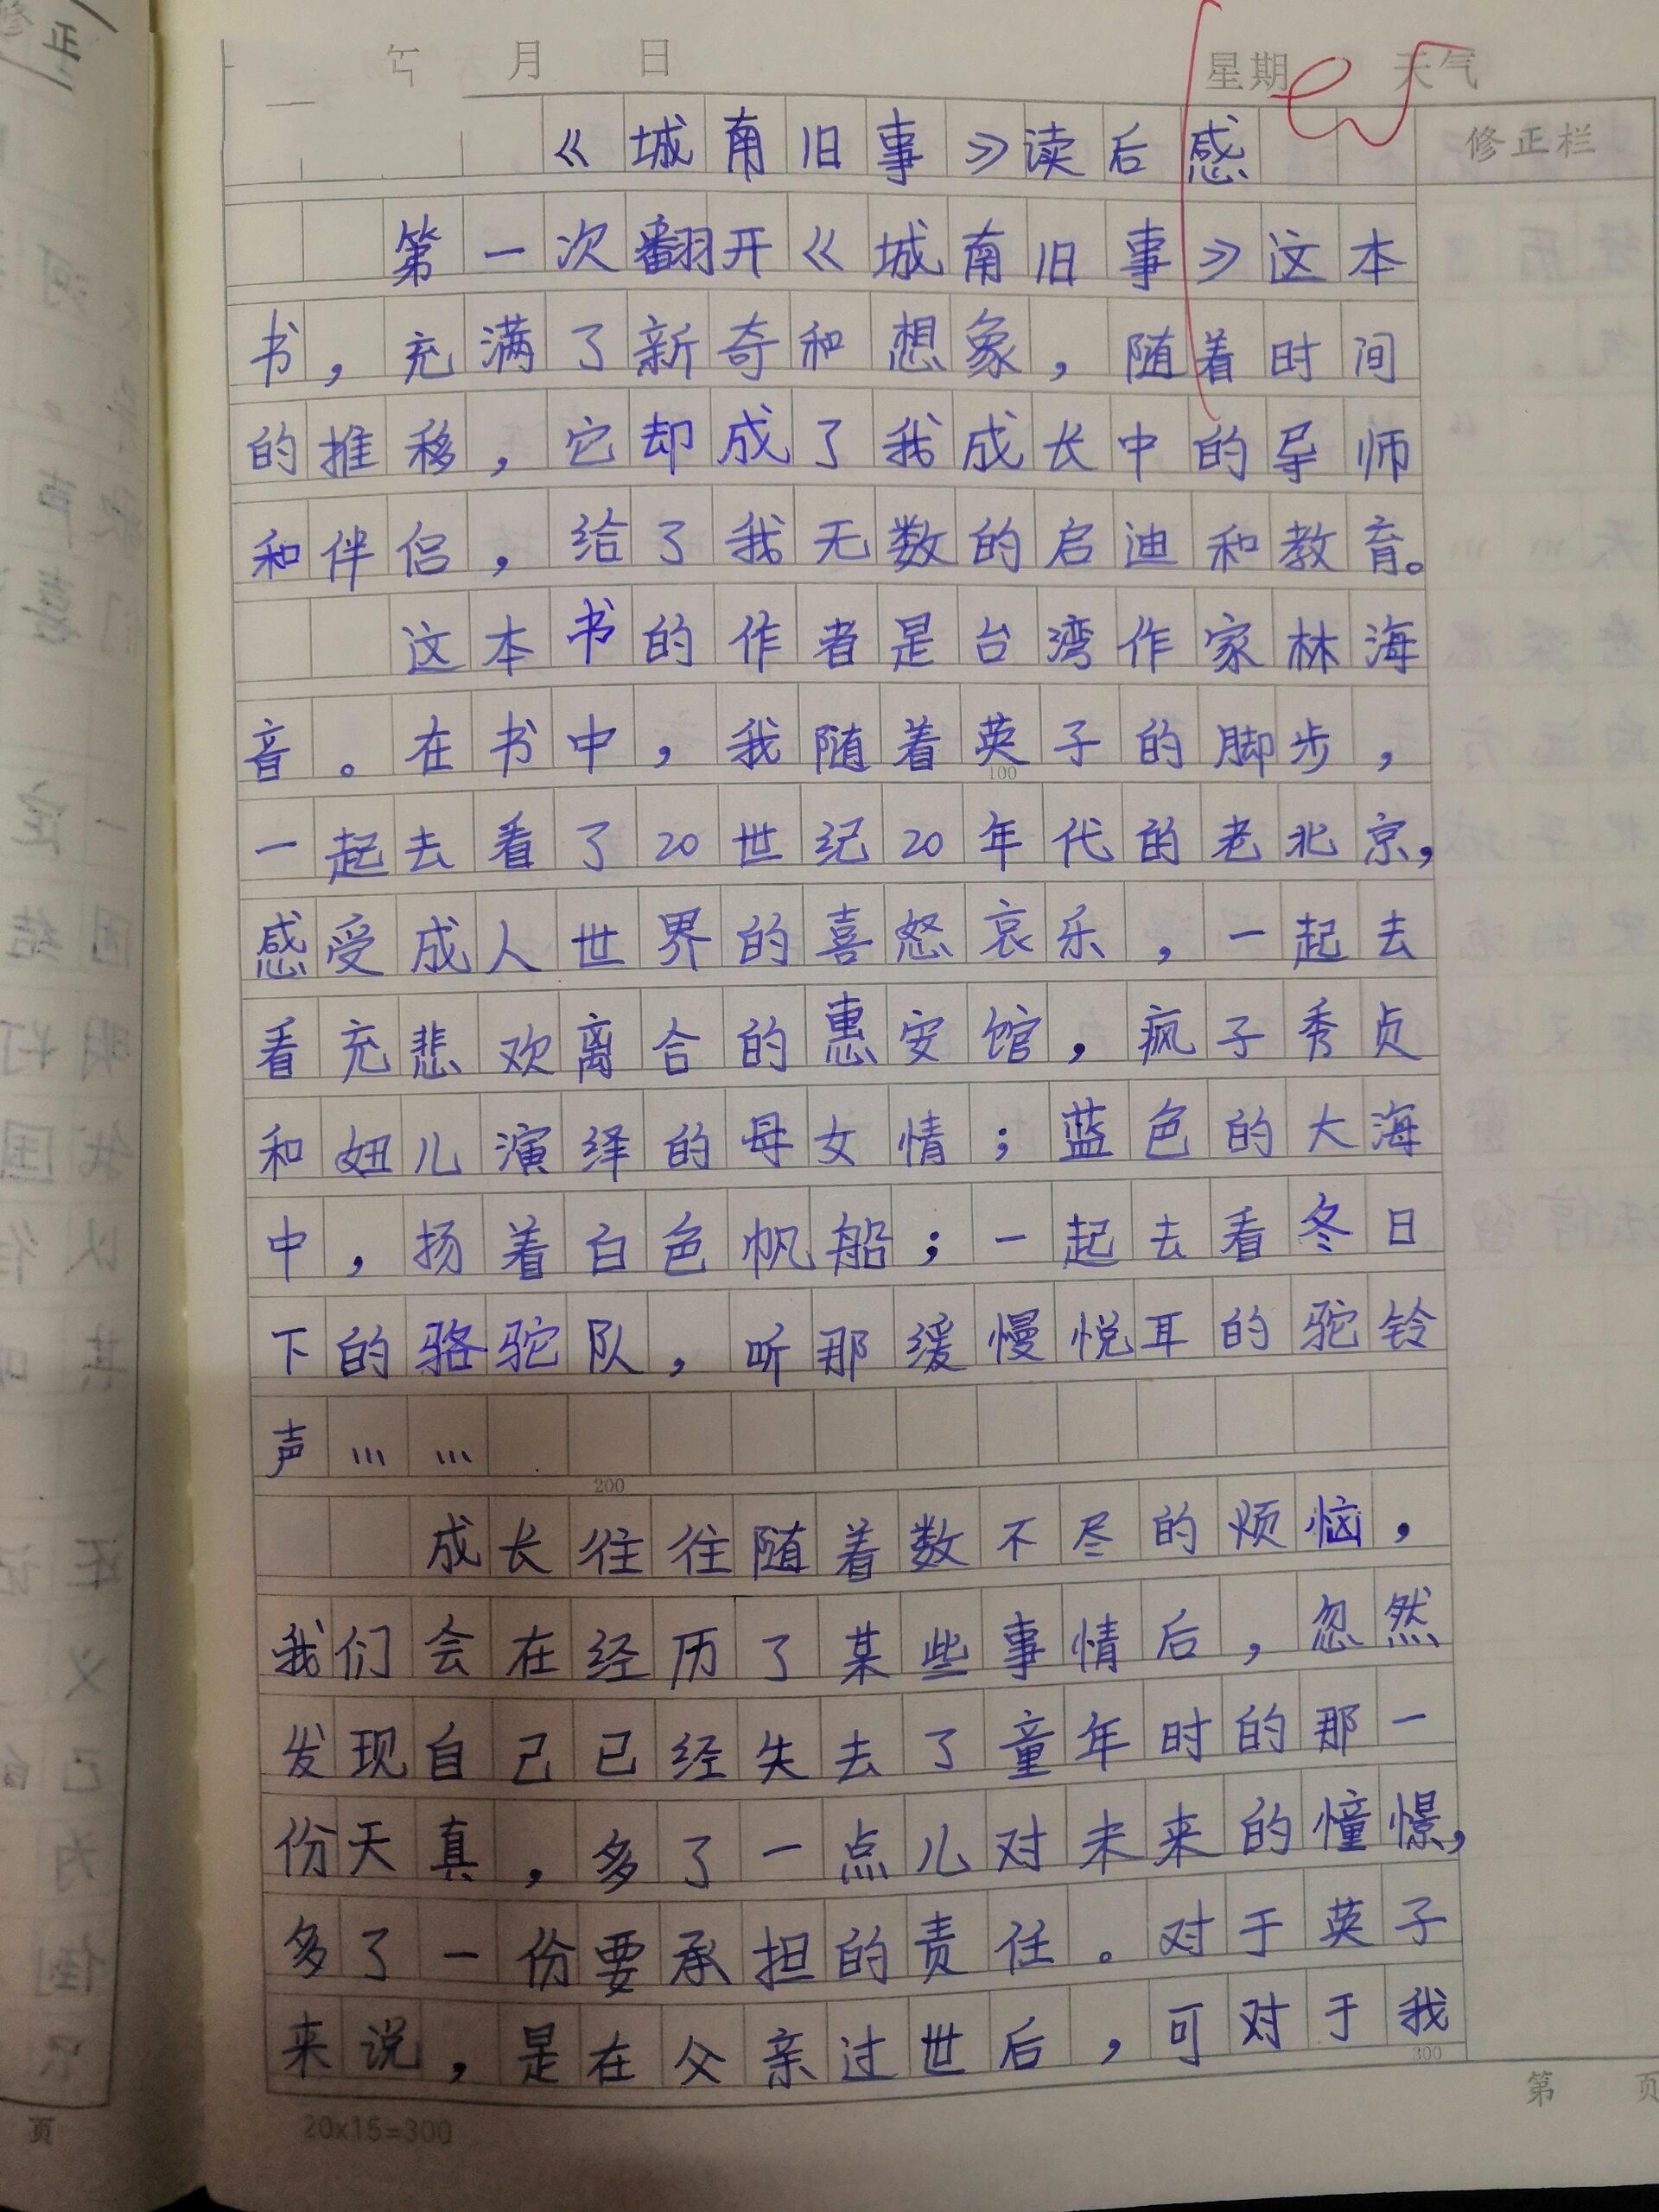 年 月 日 星期 天气
《城南旧事》读后感
修正栏
第一次翻开《城南旧事》这本
书，充满了新奇和想象，随着时间
的推移，它却成了我成长中的导师
和伴侣，给了我无数的启迪和教育。
这本书的作者是台湾作家林海
音。在书中，我随着英子的脚步，
100
一起去看了20世纪20年代的老北京，
感受成人世界的喜怒哀乐，一起去
看充悲欢离合的惠安馆，疯子秀贞
和妞儿演绎的母女情；蓝色的大海
中，扬着白色帆船；一起去看冬日
下的骆驼队，听那缓慢悦耳的驼铃
声……
200
成长往往随着数不尽的烦恼，
我们会在经历了某些事情后，忽然
发现自己已经失去了童年时的那一
份天真，多了一点儿对未来的憧憬，
多了一份要承担的责任。对于英子
来说，是在父亲过世后，可对于我
300
第 页
20x15=300
页